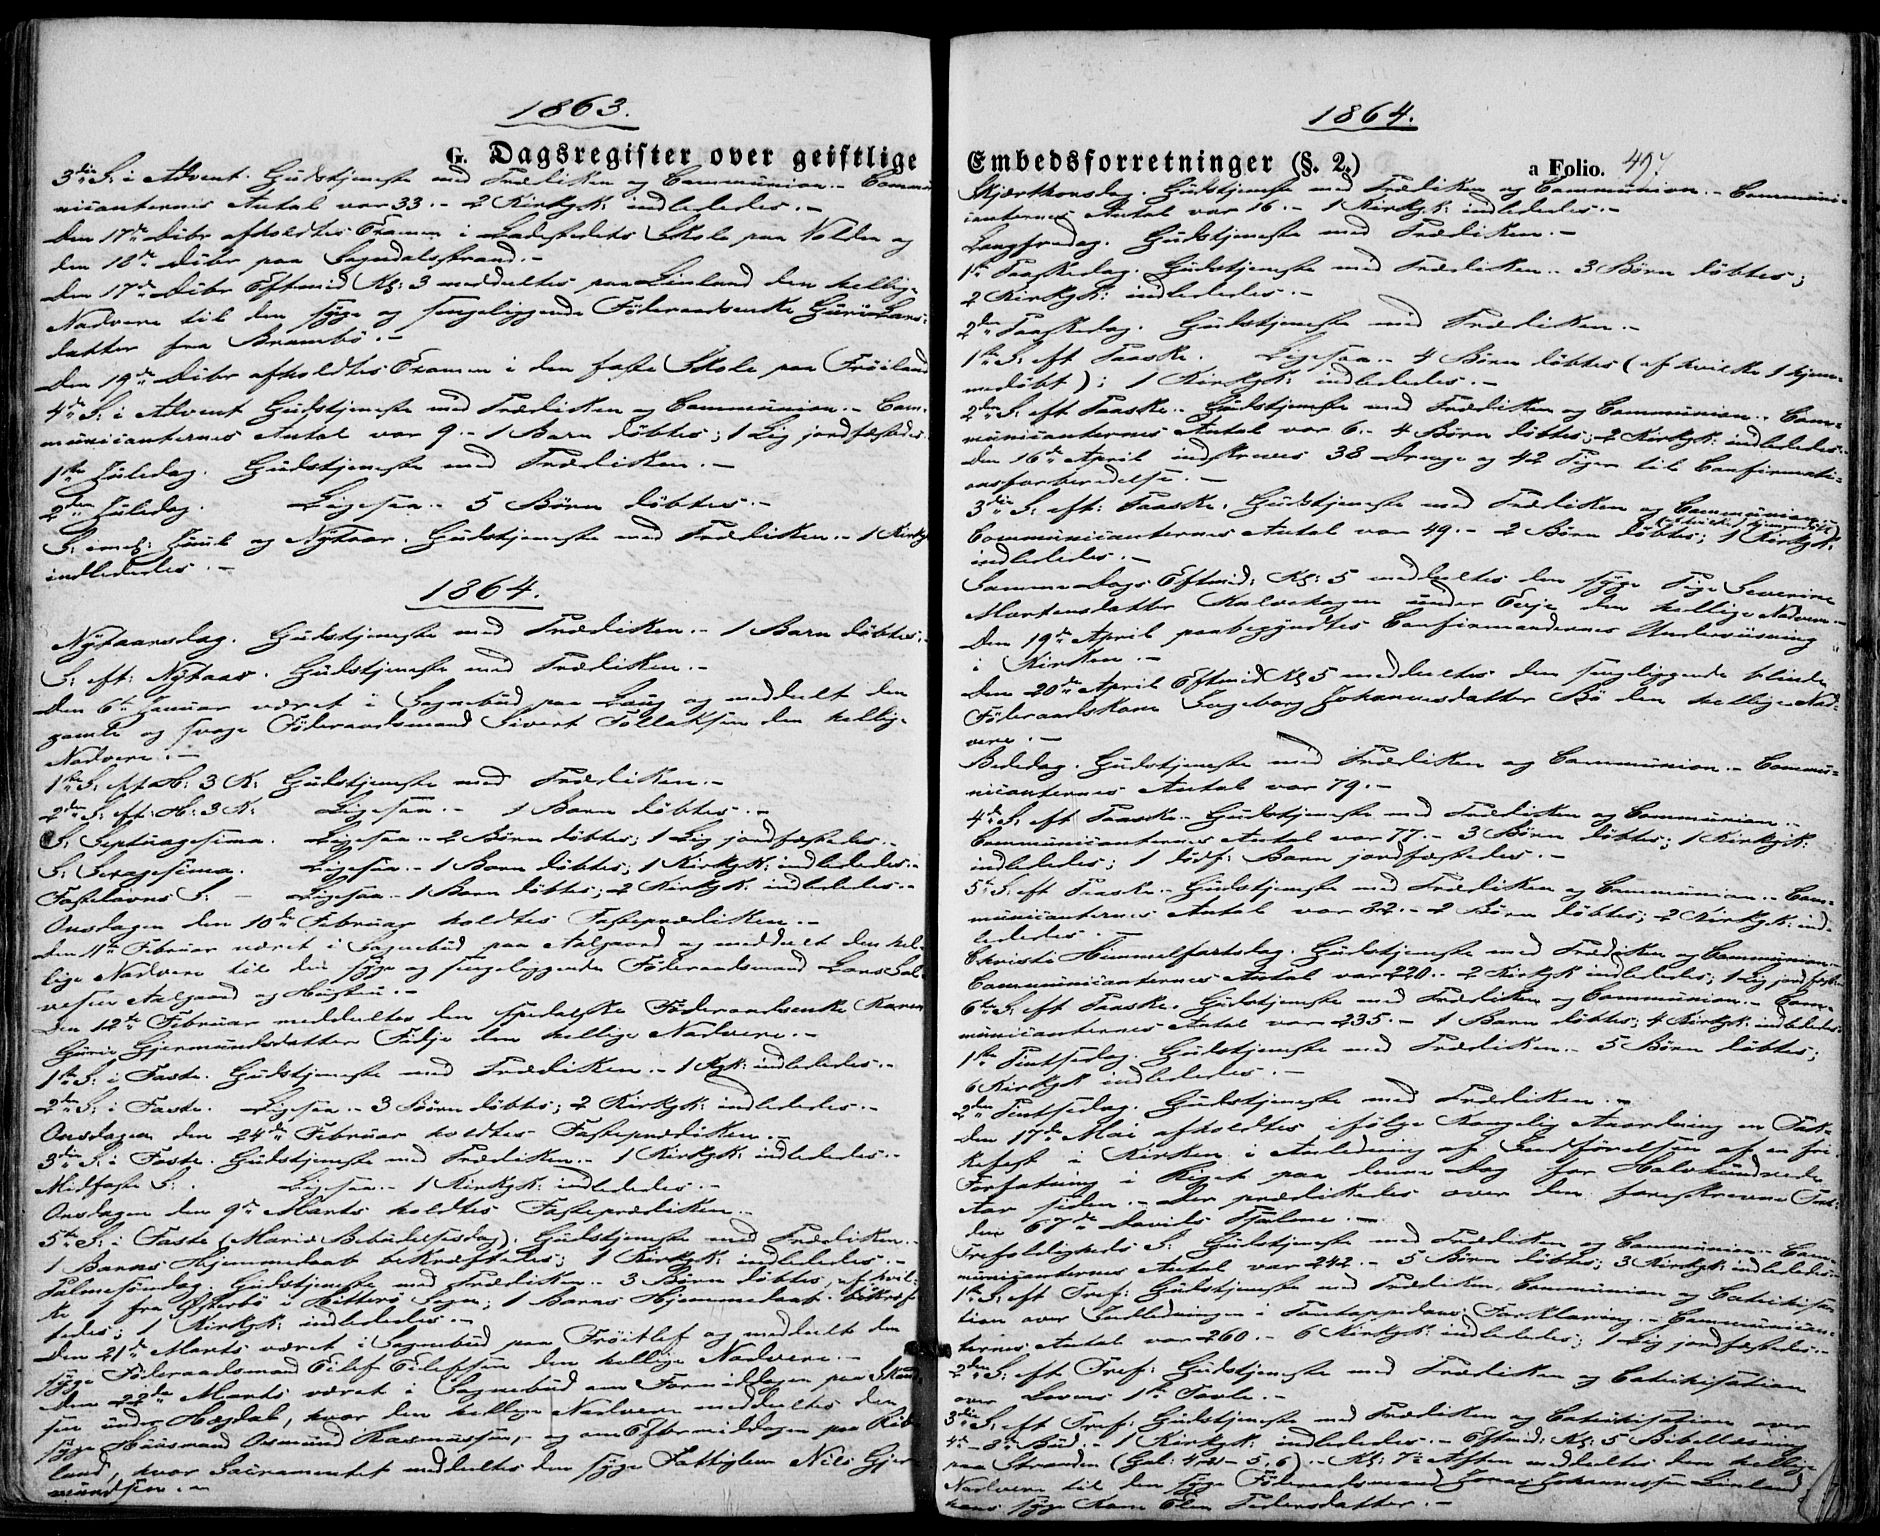 1863.
G. Dagsregister over geistlige
3die S: i Advent. Gudstjeneste med Prædiken og Communion. - Commu-
nicanternes Antal var 33. - 2 Kirkgk: indlededes. -
Den 17de Dcbr afholdtes Examen i Ladestedets Skole paa Nolden og
den 18de Dcbr paa Sogndalsstrand. -
Den 17de Dcbr Eftmid Kl: 3 meddeeltes paa Linland den hellige
Nadvere til den syge og sengeliggende Föderaadsenke Guri Lars-
datter fra Brambö. -
Den 19de Dcbr afholdtes Examen i den faste Skole paa Fröiland
4de S: i Advent Gudstjeneste med Prædiken og Communion. - Com-
municanternes Antal var 9. - 1 Barn döbtes; 1 Lig jordfæstedes.
1ste Juledag. Gudstjeneste med Prædiken. -
2den Juledag. Ligesaa. - 5 Börn döbtes. -
S: imel: Juul og Nytaar. Gudstjeneste med Prædiken. - 1 Kirkg
indlededes. -
1864.
Nytaarsdag. Gudstjeneste med Prædiken. - 1 Barn döbtes. -
S: eft: Nytaar. Gudstjeneste med Prædiken. -
Den 6te Januar været i Sognebud paa Laug og meddeelt den
gamle og svage Föderaadsmand Sivert Tollaksen den hellige
Nadvere. -
1ste S: eft H: 3 K: Gudstjeneste med Prædiken. -
2den S: eft: H: 3 K: Ligesaa. - 1 Barn döbtes. -
S: Septuagesima. Ligesaa. - 2 Börn döbtes; 1 Lig jordfæstedes. -
S: Sexagesima. Ligesaa. - 1 Barn döbtes; 1 Kirkgk: indlededes. -
Fastelavns S: - Ligesaa. - 1 Barn döbtes; 2 Kirkgk: indlededes. -
Onsdagen den 10de Februar holdtes Fasteprædiken. -
Den 11te Februar været i Sognebud paa Aalgaard og meddeelt den hel-
lige Nadvere til den syge og sengeliggende Föderaadsmand Lars Sal-
vesen Aalgaard og Hustru. -
Den 12te Februar meddeeltes den spedalske Föderaadsenke Karen
Guri Gjermundsdatter Eidje den hellige Nadvere. -
1ste S: i Faste. Gudstjeneste med Prædiken. - 1 Kgk: indlededes. -
2den S: i Faste. Ligesaa. - 3 Börn döbtes; 2 Kirkgk: indlededes. -
Onsdagen den 24de Februar holdtes Fasteprædiken. -
3die S: i Faste. Gudstjeneste med Prædiken. - 1 Kirkgk: indlededes. -
Midfaste S: . Ligesaa. - 1 Kirkgk: indlededes. -
Onsdagen den 9de Marts holdtes Fasteprædiken. -
5te S: i Faste (Mariæ Bebudelsesdag). Gudstjeneste med Prædiken. -
1 Barns Hjemmedaab bekræftedes; 1 Kirkgk: indlededes. -
Palmesöndag. Gudstjeneste med Prædiken. - 3 Börn döbtes, af hvil-
ke 1 fra Østerbö i Hitterö Sogn; 1 Barns Hjemmedaab bekræf-
tedes; 1 Kirkgk: indlededes. -
Den 21de Marts været i Sognebud paa Fröitlef og meddeelt den
syge Föderaadsmand Eilef Eilefsen den hellige Nadvere. -
Den 22de Marts været i Sognebud om Formiddagen paa
sen under Hægdal, hvor den hellige Nadvere meddeeltes den
syge Huusmand Osmund Rasmussen, - og om Eftermiddagen paa
land, hvor Sacramentet meddeeltes den syge Fattiglem Nils Gjer-
mundsen. -
1864.
Embedsforretninger (§. 2.) a Folio. 497
Skjærthorsdag. Gudstjeneste med Prædiken og Communion. - Communi-
canternes Antal var 16. - 1 Kirkgk: indlededes. -
Langfredag. Gudstjeneste med Prædiken. -
1ste Paaskedag. Gudstjeneste med Prædiken. - 3 Börn döbtes;
2 Kirkgk: indlededes. -
2den Paaskedag. Gudstjeneste med Prædiken. -
1ste S: eft Paaske. Ligesaa. - 4 Börn döbtes (af hvilke 1 hjem-
medöbt); 1 Kirkgk: indlededes. -
2den S: eft Paaske. Gudstjeneste med Prædiken og Communion. - Com-
municanternes Antal var 6. - 4 Börn döbtes; 2 Kirkgk: indlededes. -
Den 16de April indskreves 38 Drenge og 42 Piger til Confirmati-
onsforberedelse. -
3die S: eft: Paaske. Gudstjeneste med Prædiken og Communion.
Communicanternes Antal var 49. - 2 Börn döbtes; (af hvilke 1 hjemmedöbt) 1 Kirkgk:
indlededes. -
Samme Dags Eftmid: Kl: 5 meddeeltes den syge Pige Severine
Mortensdatter Kalvehagen under Eeje den hellige Nadvere. -
Den 19de April paabegyndtes Confirmandernes Underviisning
i Kirken. -
Den 20de April Eftmid Kl 5 meddeeltes den sengeliggende blinde
Föderaadskone Ingeborg Johannesdatter Bö den hellige Nad-
vere. -
Bededag. Gudstjeneste med Prædiken og Communion. - Commu-
nicanternes Antal var 79. -
4de S: eft Paaske. Gudstjeneste med Prædiken og Communion. -
Communicanternes Antal var 77. - 3 Börn döbtes; 1 Kirkgk:
indlededes; 1 dödf: Barn jordfæstedes. -
5te S: eft Paaske. Gudstjeneste med Prædiken og Communion. - Com-
municanternes Antal var 32. - 2 Börn döbtes; 2 Kirkgk: ind-
lededes. -
Christi Himmelfartsdag. Gudstjeneste med Prædiken og Communion. -
Communicanternes Antal var 220. - 2 Kirkgk indlededes; 1 Lig jordfæstedes
6te S: eft Paaske. Gudstjeneste med Prædiken og Communion. - Com-
municanternes Antal var 235. - 1 Barn döbtes; 4 Kirkgk: indlededes.
1ste Pintsedag. Gudstjeneste med Prædiken. - 5 Börn döbtes;
6 Kirkgk indlededes. -
2den Pintsedag. Gudstjeneste med Prædiken. -
Den 17de Mai afholdtes ifölge Kongelig Anordning en Tak-
kefest i Kirken i Anledning af Indförelsen af en fri
Forfatning i Riget paa denne Dag for Halvhundrede
Aar siden. - Der prædikedes over den foreskrevne Text:
den 67de Davids Psalme. -
Trefoldigheds S: Gudstjeneste med Prædiken og Communion. - Com-
municanternes Antal var 242. - 5 Börn döbtes; 3 Kirkgk: indlededes. -
1ste S: eft Tref: Gudstjeneste med Prædiken, Communion og Catechisa-
tion over Indledningen i Pontoppidans Forklaring. - Communican-
ternes Antal var 260. - 6 Kirkgk: indlededes; 1 Lig jordfæstedes. -
2den S: eft Tref: Gudstjeneste med Prædiken og Catechisation
over Lovens 1ste Tavle. -
3die S: eft Tref: Gudstjeneste med Prædiken og Catechisation over
4de - 8de Bud. - 1 Kirkgk: indlededes. - Eftmid: Kl: 5 Bibellæsning
paa Stranden (Gal: - 5, 6). - Kl: 7 Aften meddeeltes den hellige
Nadvere til den syge Föderaadsmand Jonas Johannessen Linland
hans syge Kone Elen Pedersdatter. -